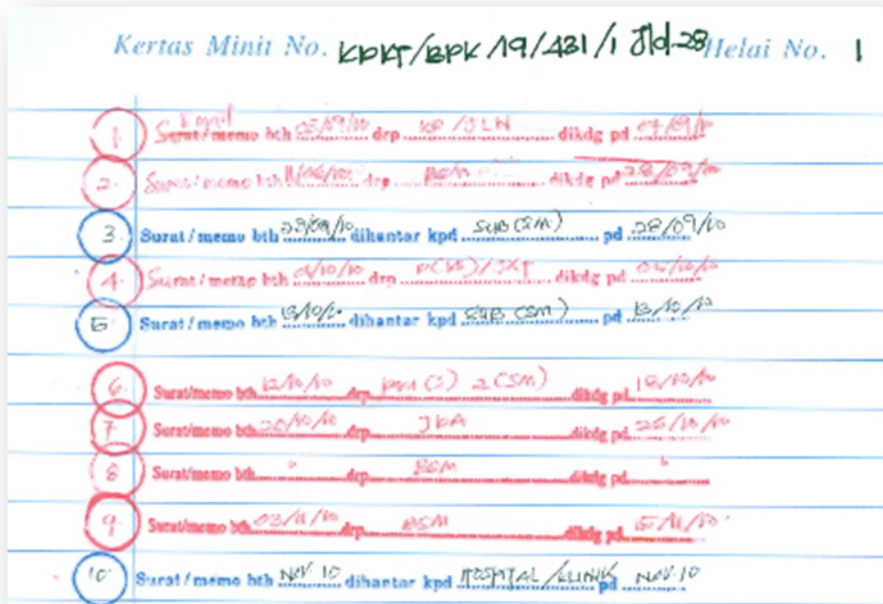 Kertas Minit No. KPKT/BPK/19/431/1 Jld-28 Helai No. 1
1. Email Surat/memo bth 03/09/10 drp /JLN dikdg pd 07/09/10
2. Surat/memo bth drp BSM dikdg pd 28/09/10
3. Surat/memo bth 28/09/10 dihantar kpd SUB (SM) pd 28/09/10
4. Surat/memo bth /10/10 drp /JKT dikdg pd /10/10
5 Surat/memo bth 13/10/10 dihantar kpd SUB (SM) pd 13/10/10
6. Surat/memo bth 12/10/10 drp (S) 2 (SM) dikdg pd /10/10
7 Surat/memo bth 20/10/10 drp JBA dikdg pd 25/10/10
8 Surat/memo bth " drp BSM dikdg pd "
9. Surat/memo bth 03/11/10 drp BSM dikdg pd 5/11/10
10. Surat/memo bth NOV. 10 dihantar kpd HOSPITAL/KLINIK pd NOV. 10